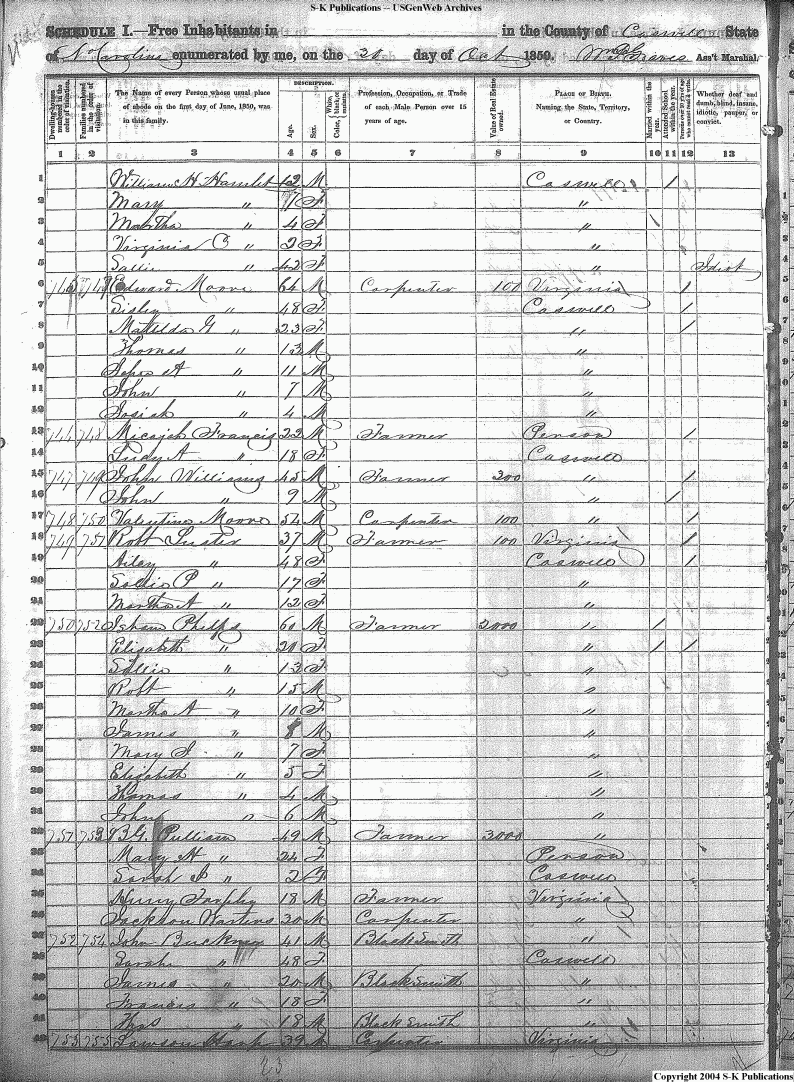 S-K Publications -- USGenWeb Archives
SCHEDULE I.—Free Inhabitants in in the County of Caswell State
of N. Carolina enumerated by me, on the 20 day of Oct 1850. Graves Ass't Marshal.
Dwelling-houses numbered in the order of visitation. Families numbered in the order of visitation. The Name of every Person whose usual place of abode on the first day of June, 1850, was in this family. DESCRIPTION. Age. Sex. Color, White, black, or mulatto. Profession, Occupation, or Trade of each Male Person over 15 years of age. Value of Real Estate owned. PLACE OF BIRTH. Naming the State, Territory, or Country. Married within the year. Attended School within the year. Persons over 20 y'rs of age who cannot read & write. Whether deaf and dumb, blind, insane, idiotic, pauper, or convict.
1 2 3 4 5 6 7 8 9 10 11 12 13
1 William H Hamlet 12 M Caswell /
2 Mary " 7 F "
3 Martha " 4 F "
4 Virginia C " 2 F "
5 Sallie " 42 F " Idiot
6 Edward Moore 64 M Carpenter 100 Virginia /
7 " 48 F Caswell /
8 Matilda G " 23 F " /
9 Thomas " 13 M "
10 A " 11 M "
11 John " 7 M "
12 Josiah " 4 M "
13 748 Micajah Francis 22 M Farmer Person /
14 A " 18 F Caswell
15 747 749 John Williams 45 M Farmer 200 " /
16 John " 9 M " /
17 748 750 Valentine Moore 54 M Carpenter 100 " /
18 749 751 Robt Luster 37 M Farmer 100 Virginia /
19 " 48 F Caswell /
20 Sallie P " 17 F "
21 Martha A " 12 F "
22 750 752 Isham Phelps 60 M Farmer 2000 " /
23 Elisabeth " 20 F " / /
24 " 13 F "
25 Robt " 15 M "
26 Martha A " 10 F "
27 James " 8 M "
28 Mary " 7 F "
29 Elizabeth " 5 F "
30 Thomas " 4 M "
31 John " 6 M "
32 751 753 Pulliam 49 M Farmer 3000 "
33 Mary H " 24 F Person
34 Sarah " 2 F Caswell
35 Henry 18 M Farmer Virginia
36 Jackson 30 M Carpenter "
37 752 754 John 41 M Black Smith "
38 Sarah " 48 F Caswell
39 James " 20 M Black Smith "
40 Francis " 18 F "
41 Thos " 18 M Black Smith "
42 755 Lawson 39 M Carpenter Virginia
23
Copyright 2004 S-K Publications